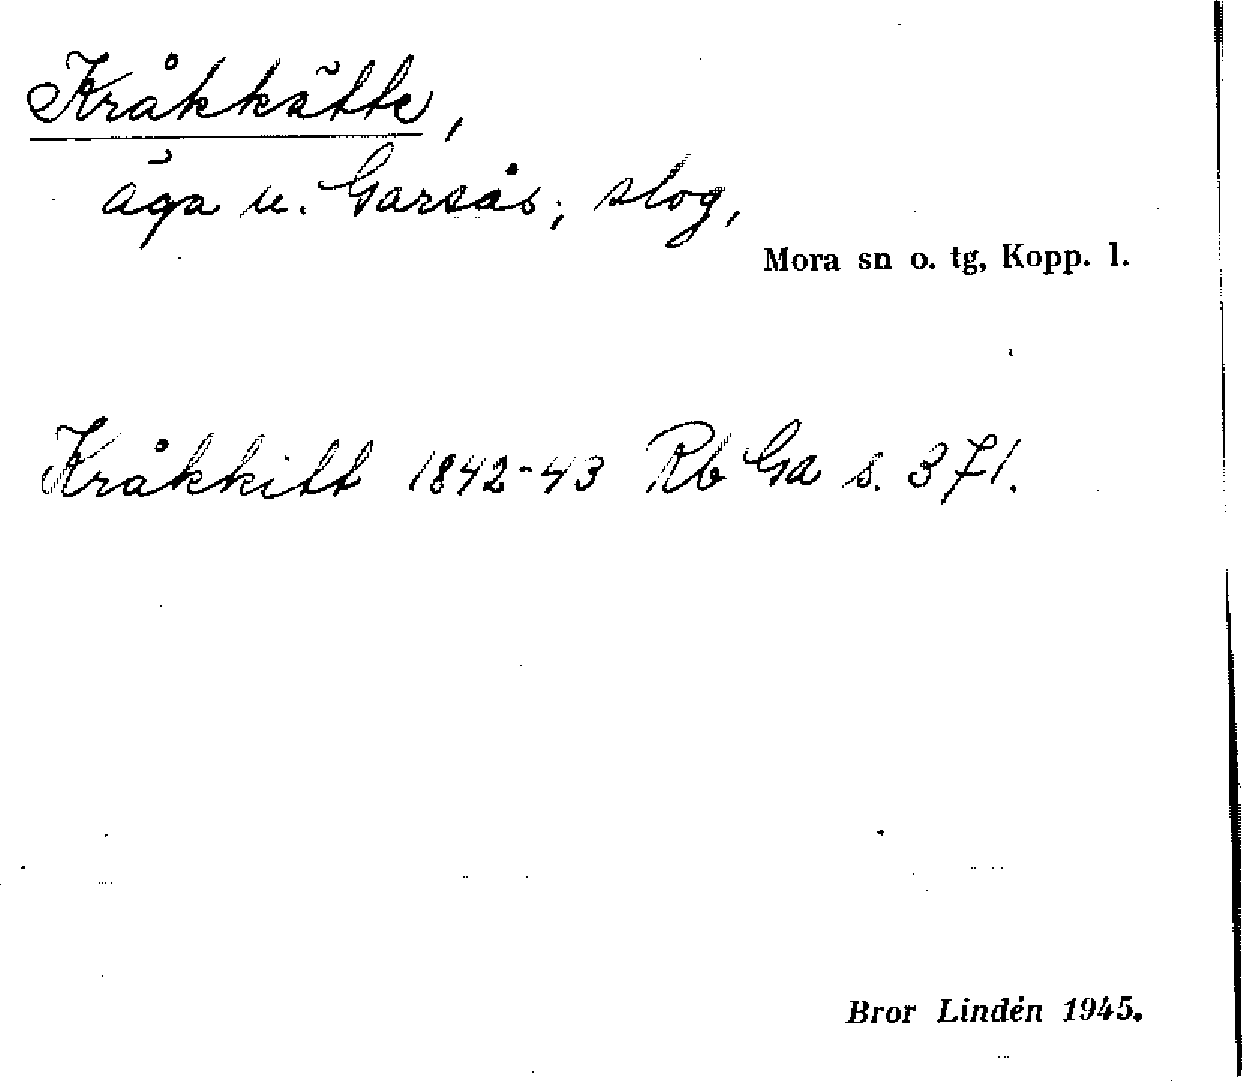 Kråkkätte,
äga u. Garsås; slog,
Mora sn o. tg, Kopp. l.
Kråkkitt 1842-43 Rb Ga s. 371.
Bror Lindén 1945.